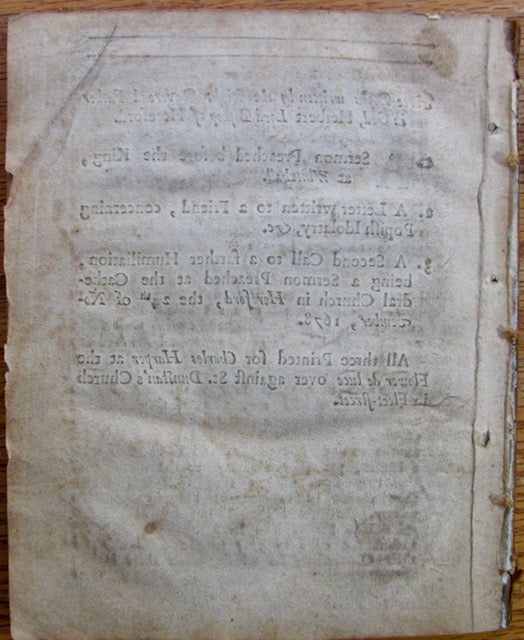 written by the Right Reverend Father
in God, Herbert Lord Bishop of Hereford.
1. A Sermon Preached before the King,
at Whitehall.
2. A Letter written to a Friend, concerning
Popish Idolatry, &c.
3. A Second Call to a farther Humiliation,
being a Sermon Preached at the Cathe-
dral Church in Hereford, the 24th of No-
vember, 1678.
All three Printed for Charles Harper at the
Flower de luce over against St. Dunstan's Church
in Fleet-street.